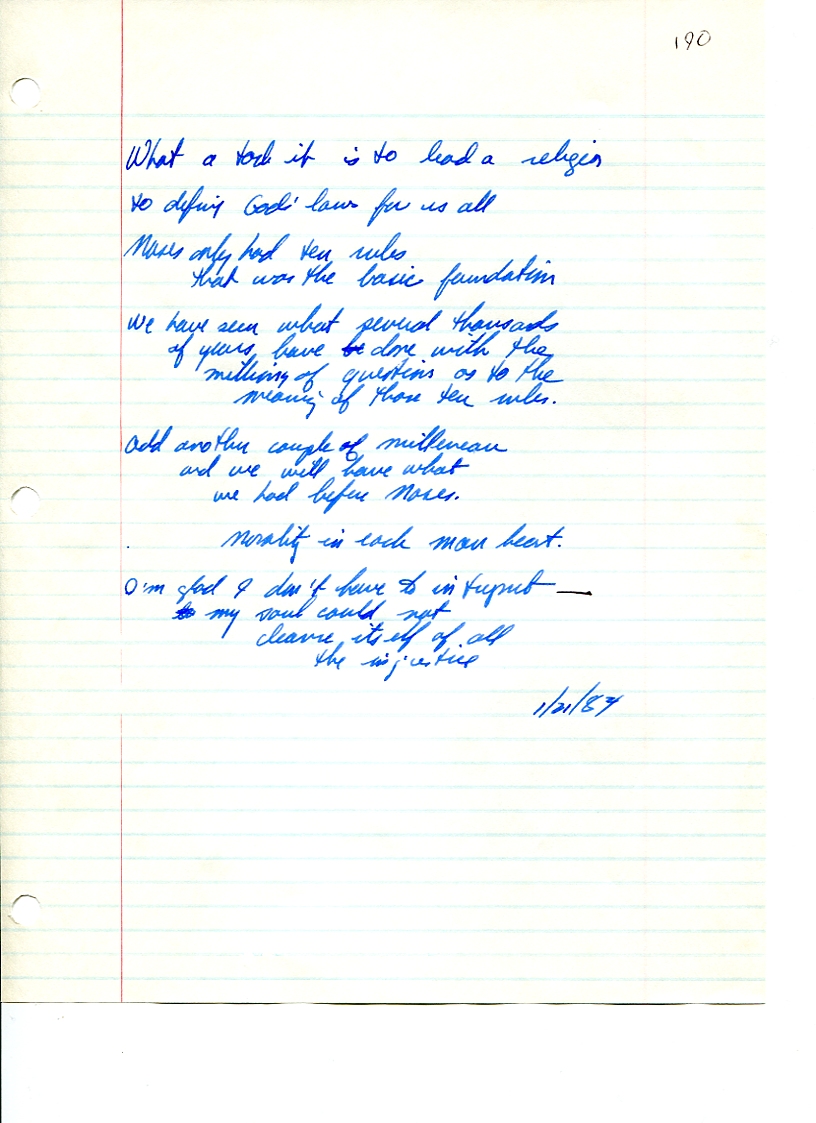 190
What a task it is to lead a religion
to defing Gods' laws for us all
Moses only had ten rules
that was the basic foundation
We have seen what several thousads
of years have be done with the
millions of questions as to the
meaning of those ten rules.
add another couple of milleneau
and we will have what
we had before Moses.
Morality in each man heart.
I'm glad I don't have to interpret —
to my soul could not
cleanse itself of all
the injustice
1/21/84